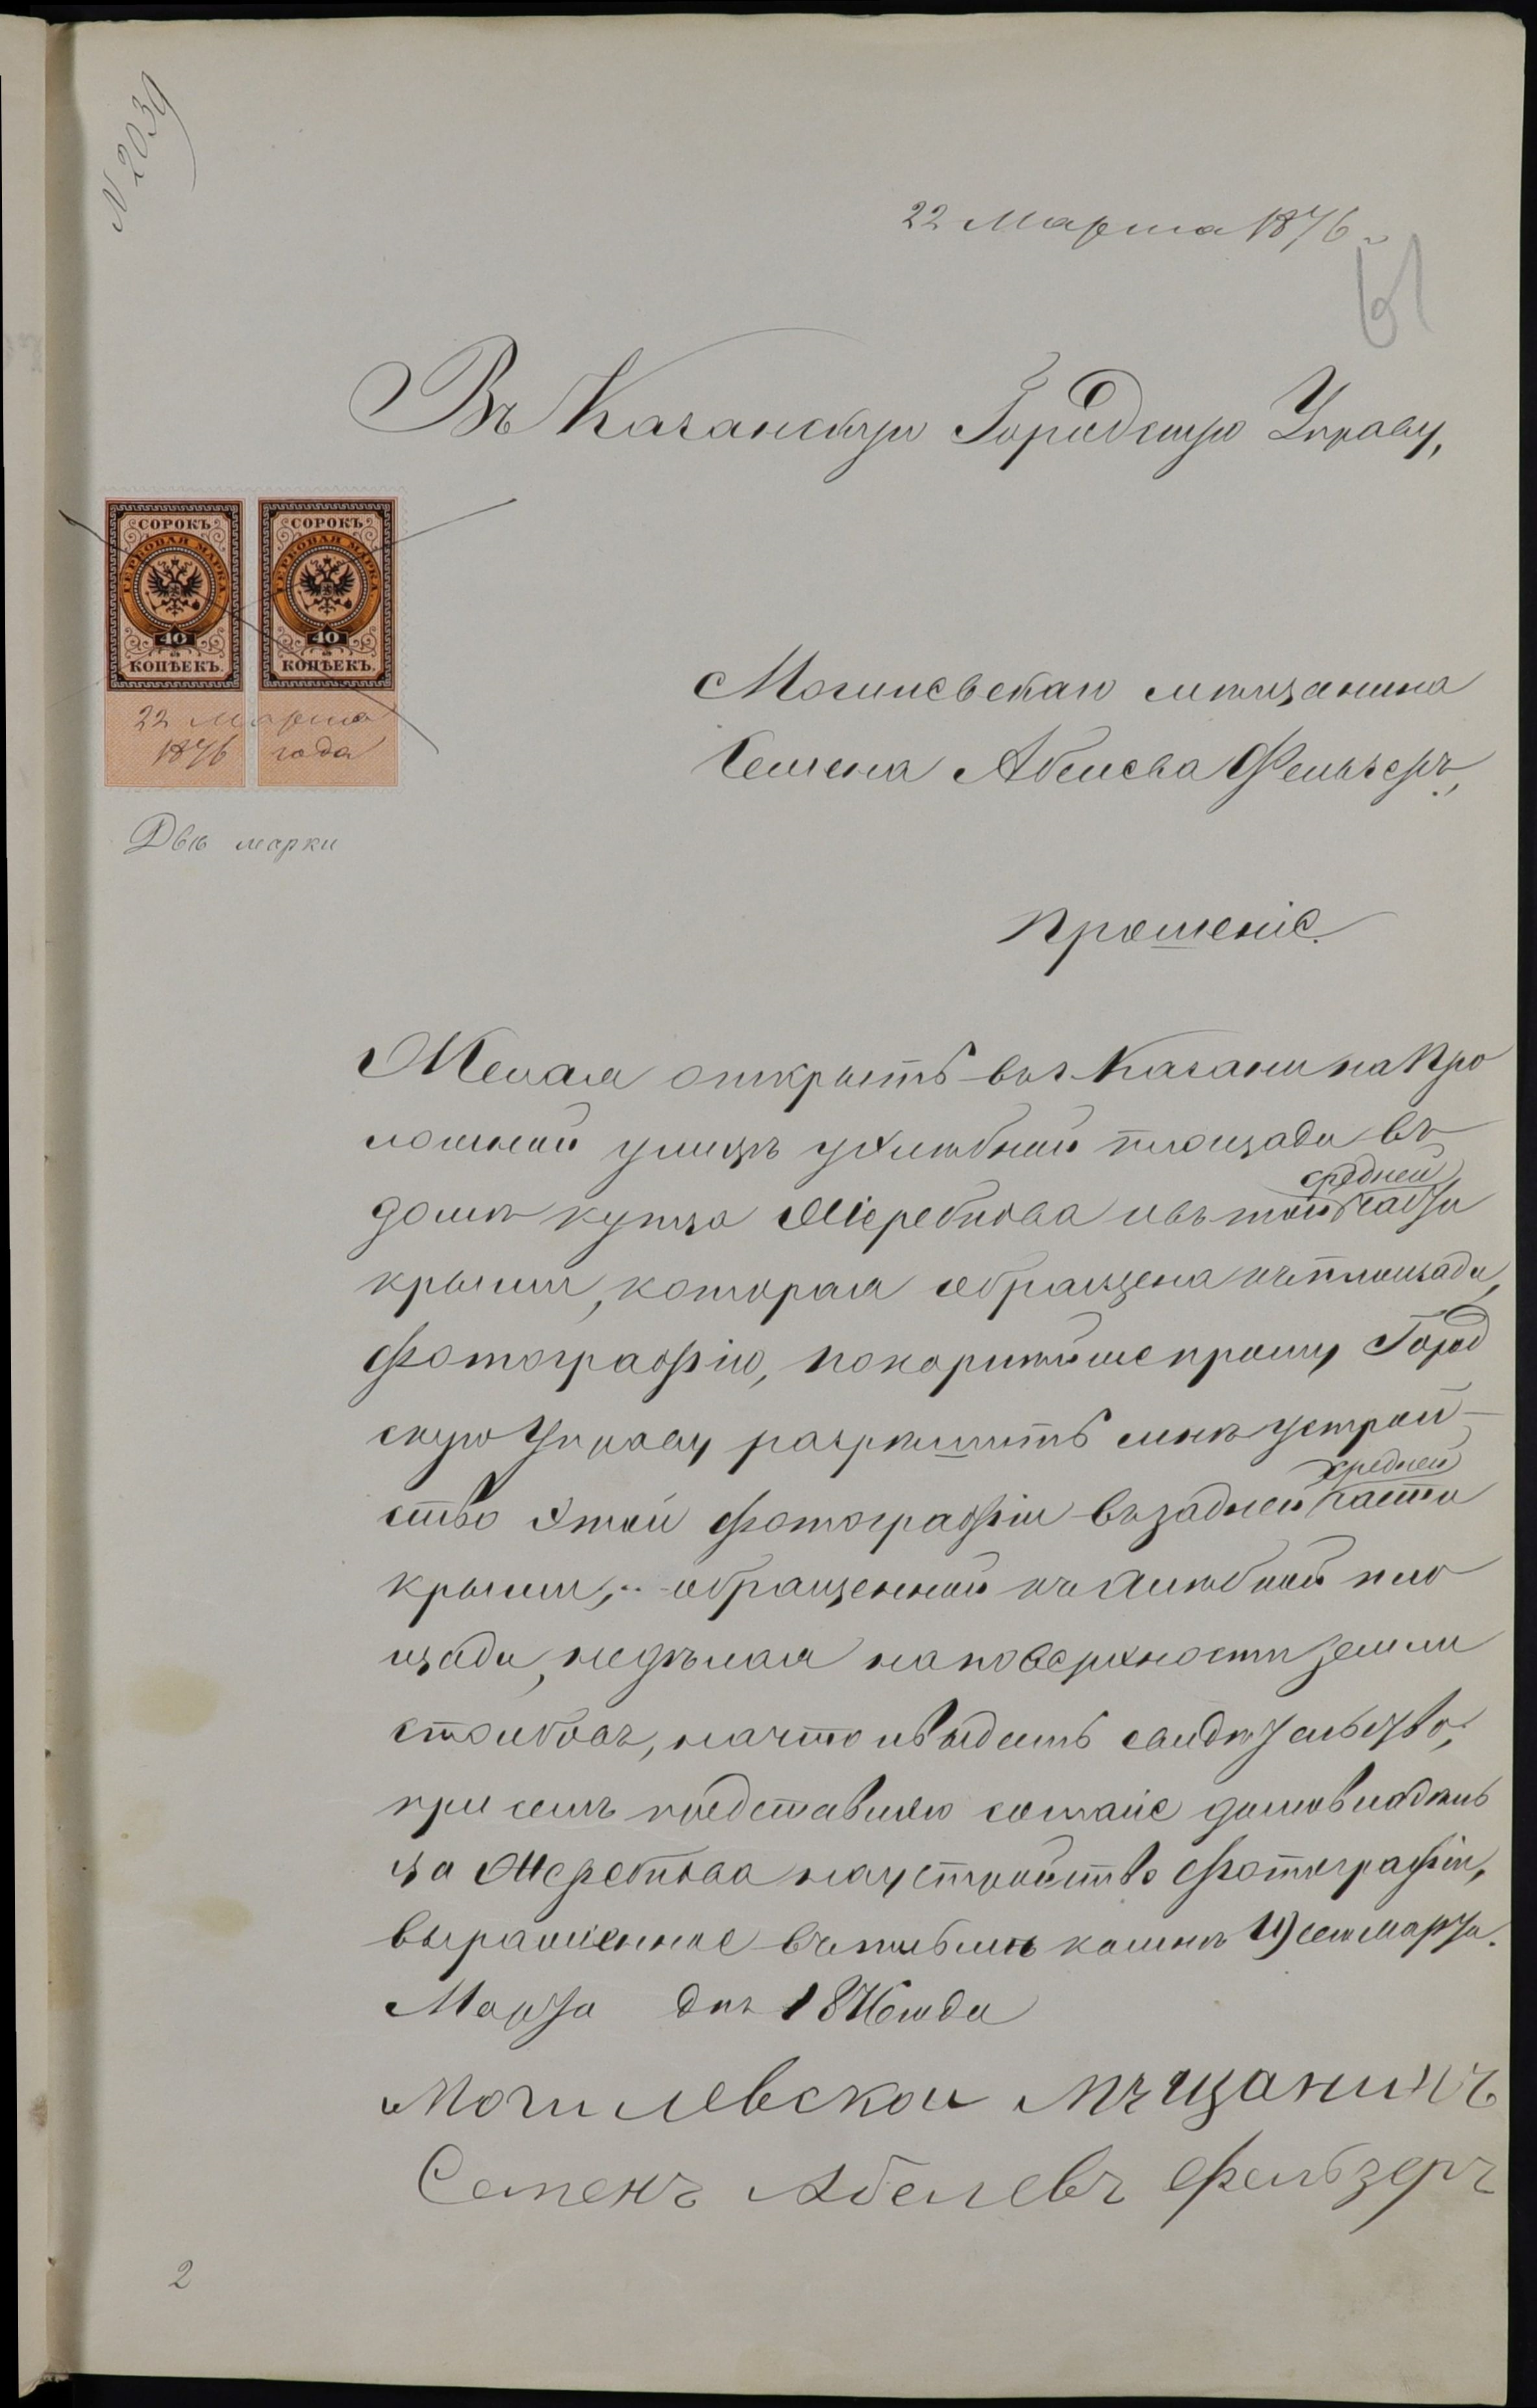 N 2039
22 Марта 1876 г.
61
Въ Казанскую Городскую Управу,
СОРОКЪ
ГЕРБОВАЯ МАРКА
40
КОПѢЕКЪ.
СОРОКЪ
ГЕРБОВАЯ МАРКА
40
КОПѢЕКЪ.
22 Марта
1876 года
Двѣ марки
Могилевскаго мѣщанина
Семена Абелева Фельзеръ,
Прошеніе.
Желая открыть въ г. Казани на Про
ломной улицѣ у хлѣбной площади въ
средней
домѣ купца Жеребцова въ той части
крыши, которая обращена къ площади,
фотографію, покорнѣйше прошу Город
скую Управу разрѣшить мнѣ устрой-
средней
ство этой фотографіи въ задней части
крыши, обращенной къ хлѣбной пло
щади, не дѣлая на поверхности земли
столбовъ, на что и выдать свидѣтельство,
при семъ представляю согласіе домовладѣль
ца Жеребцова на устройство фотографіи,
выраженное въ письмѣ ко мнѣ 19 сего марта.
Марта дня 1876 года
Могилевской мѣщанинъ
Семенъ Абелевъ Фельзеръ
2